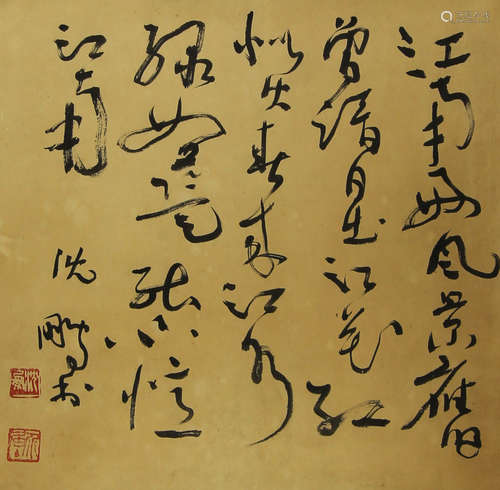 江南好风景舊
曾諳日出江花红
似火春来江水
绿如蓝能不憶
江南
沈鹏书